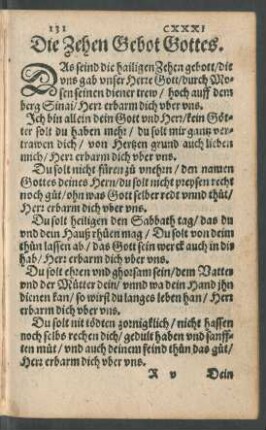 131 CXXXI
Die Zehen Gebot Gottes.
DAs seind die hailigen Zehen gebott/die
vns gab vnser Herre Gott/durch Mo-
sen seinen diener trew/ hoch auff dem
berg Sinai/Herr erbarm dich vber vns.
Ich bin allein dein Gott vnd Herr/kein Göt-
ter solt du haben mehr/ du solt mir gantz ver-
trawen dich/ von Hertzen grund auch lieben
mich/Herr erbarm dich vber vns.
Du solt nicht füren zů vnehrn/ den namen
Gottes deines Hern/du solt nicht preysen recht
noch gůt/ohn was Gott selber redt vnnd thůt/
Herr erbarm dich vber vns.
Du solt heiligen den Sabbath tag/das du
vnd dein Hauß rhůen mag/ Du solt von deim
thůn lassen ab/ das Gott sein werck auch in dir
hab/Herr erbarm dich vber vns.
Du solt ehren vnd ghorsam sein/dem Vatter
vnd der Můtter dein/vnnd wa dein Hand jhn
dienen kan/so wirst du langes leben han/ Herr
erbarm dich vber vns.
Du solt nit tödten zornigklich/nicht hassen
noch selbs rechen dich/gedult haben vnd sanff-
ten můt/ vnd auch deinem feind thůn das gůt/
Herr erbarm dich vber vns.
R v Dein